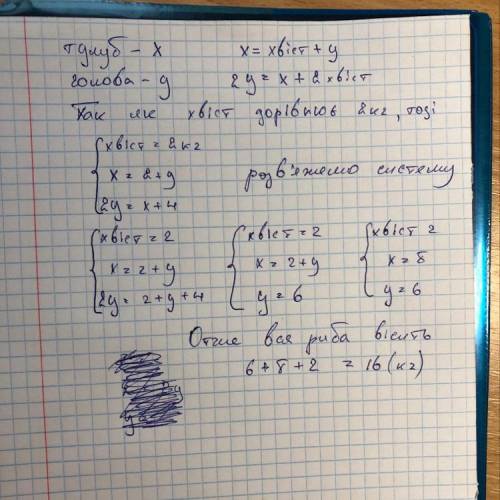 тулуб - x x = хвіст + y
голова - y 2y = x + 2 хвіст
Так як хвіст дорівнює 2кг, тоді
хвіст = 2кг
x = 2+y розв'яжемо систему
2y = x+4
хвіст = 2 хвіст = 2 хвіст 2
x = 2+y x = 2+y x = 8
2y = 2+y+4 y = 6 y = 6
Отже вся риба вісить
6+8+2 = 16 (кг)